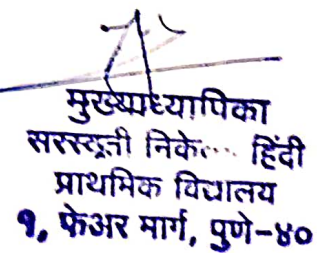 मुख्याध्यापिका
सरस्वती हिंदी
प्राथमिक विद्यालय
१, फेअर मार्ग, पुणे-४०